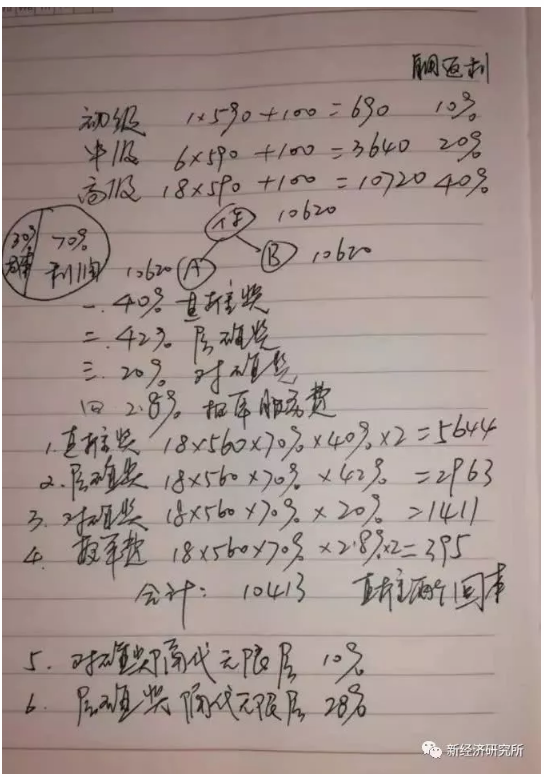 月返利
初级 1×590+100=690 10%
中级 6×590+100=3640 20%
高级 18×590+100=10720 40%
10620
30% 成本 70% 利润 10620 A B 10620
一.40% 直推奖
二.42% 层碰奖
三.20% 对碰奖
四 2.8% 报单服务费
1.直推奖 18×560×70%×40%×2=5644
2.层碰奖 18×560×70%×42% =2963
3.对碰奖 18×560×70%×20% =1411
4. 报单费 18×560×70%×2.8%×2=395
合计: 10413 直推两个回本
5. 对碰奖隔代无限层 10%
6. 层碰奖隔代无限层 28%
新经济研究所